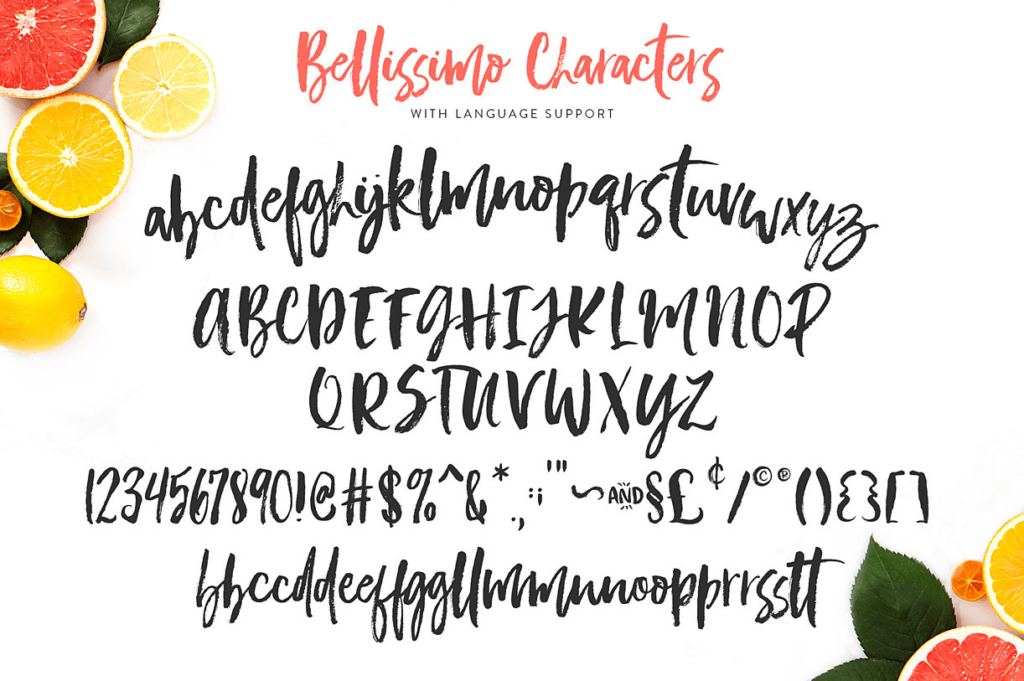 Bellissimo Characters
WITH LANGUAGE SUPPORT
abcdefghijklmnopqrstuvwxyz
ABCDEFGHIJKLMNOP
QRSTUVWXYZ
1234567890!@#$%^&*.,:;'"~AND§£¢/©℗(){}[]
bbccddeeffggllmmnnoopprrsstt